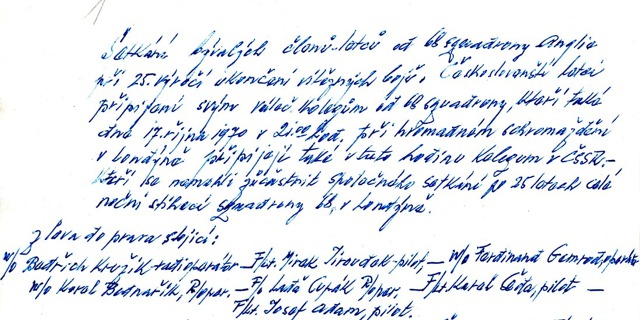 Setkání bývalých členů-letců od 68 squadrony Anglie
při 25. výročí ukončení vítězných bojů. Českoslovenští letci
připíjení svým válec. kolegům od 68 squadrony, kteří také
dne 17. října 1970 v 21.00 hod. při hromadném schromáždění
v Londýně připíjejí také v tuto hodinu kolegům v ČSSR,-
kteří se nemohli zúčastnit společného setkání po 25 letech celé
noční stíhací squadrony 68, v Londýně.
Z leva do prava stojící:
w/o Bedřich Kružík-radioperátor - F/Lt. Mirek -pilot, - w/o Ferdinand
w/o Karel Bednařík, R/oper. - F/o Láďa R/oper. - F/Lt. Karel pilot -
F/Lt. Josef Adam, pilot.